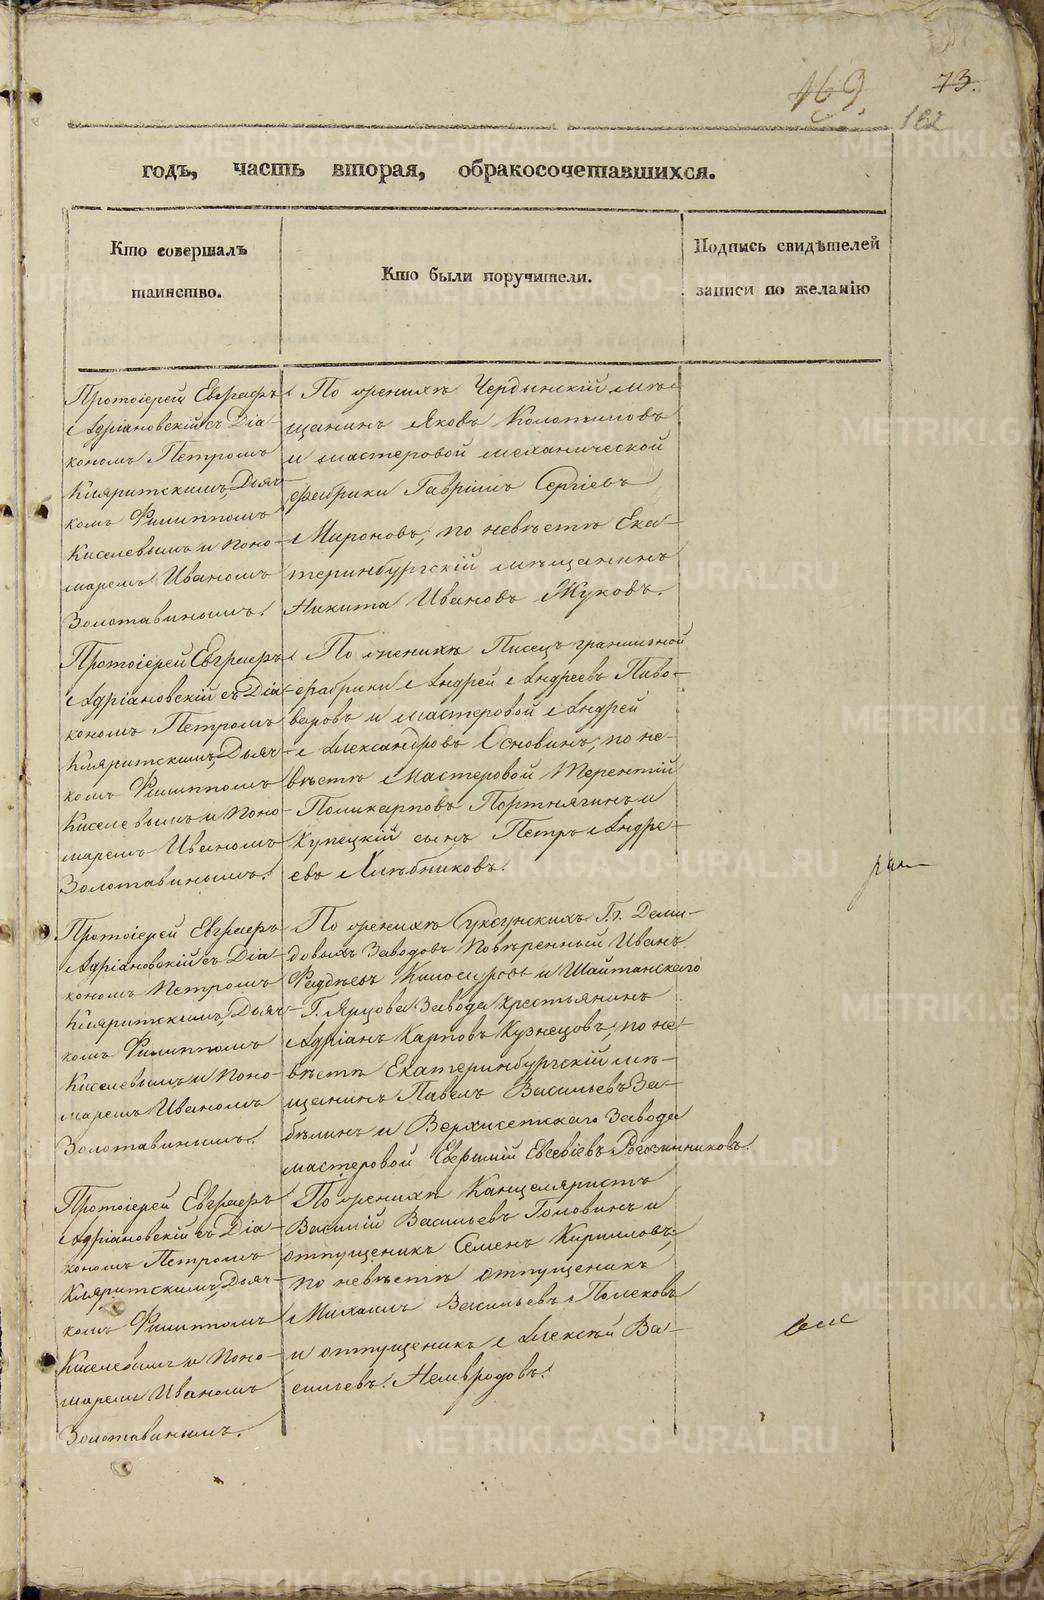 169.
73.
182
годъ, часть вторая, обракосочетавшихся.
Кто совершалъ
таинство.
Кто были поручители.
Подпись свидѣтелей
записи по желанію
Протоіерей Евграфъ
Адріановскій съ Діа-
кономъ Петромъ
Кляритскимъ, Дьяч-
комъ Филиппомъ
Киселевымъ и Поно-
маремъ Иваномъ
Золотавинымъ.
По женихѣ Чердынскій мѣ-
щанинъ Яковъ Колотиловъ
и мастеровой механической
фабрики Гавріилъ Сергіевъ
Мироновъ, по невѣстѣ Ека-
теринбургскій мѣщанинъ
Никита Ивановъ Жуковъ.
Протоіерей Евграфъ
Адріановскій съ Діа-
кономъ Петромъ
Кляритскимъ, Дьяч-
комъ Филиппомъ
Киселевымъ и Поно-
маремъ Иваномъ
Золотавинымъ.
По женихѣ Писецъ гранильной
фабрики Андрей Андреевъ Пиво-
варовъ и мастеровой Андрей
Александровъ Основинъ, по не-
вѣстѣ мастеровой Терентій
Поликарповъ Портнягинъ и
Купецкій сынъ Петръ Андре-
евъ Хлѣбниковъ.
Протоіерей Евграфъ
Адріановскій съ Діа-
кономъ Петромъ
Кляритскимъ, Дьяч-
комъ Филиппомъ
Киселевымъ и Поно-
маремъ Иваномъ
Золотавинымъ.
По женихѣ Суксунскихъ Г.г. Деми-
довыхъ Заводовъ Повѣренный Иванъ
Фадѣевъ и Шайтанскаго
Г. Ярцова Завода крестьянинъ
Адріанъ Карповъ Кузнецовъ, по не-
вѣстѣ Екатеринбургскій мѣ-
щанинъ Павелъ Васильевъ За-
бѣлинъ и Верхисетскаго Завода
мастеровой Евфимій Евсевіевъ Рогожинниковъ.
Протоіерей Евграфъ
Адріановскій съ Діа-
кономъ Петромъ
Кляритскимъ, Дьяч-
комъ Филиппомъ
Киселевымъ и Поно-
маремъ Иваномъ
Золотавинымъ.
По женихѣ Канцеляристъ
Василій Васильевъ Головинъ и
отпущеникъ Семенъ Кирилловъ,
по невѣстѣ отпущеникъ
Михаилъ Васильевъ Полековъ
и отпущеникъ Алексѣй Ва-
сильевъ Немвродовъ.
METRIKI.GASO-URAL.RU